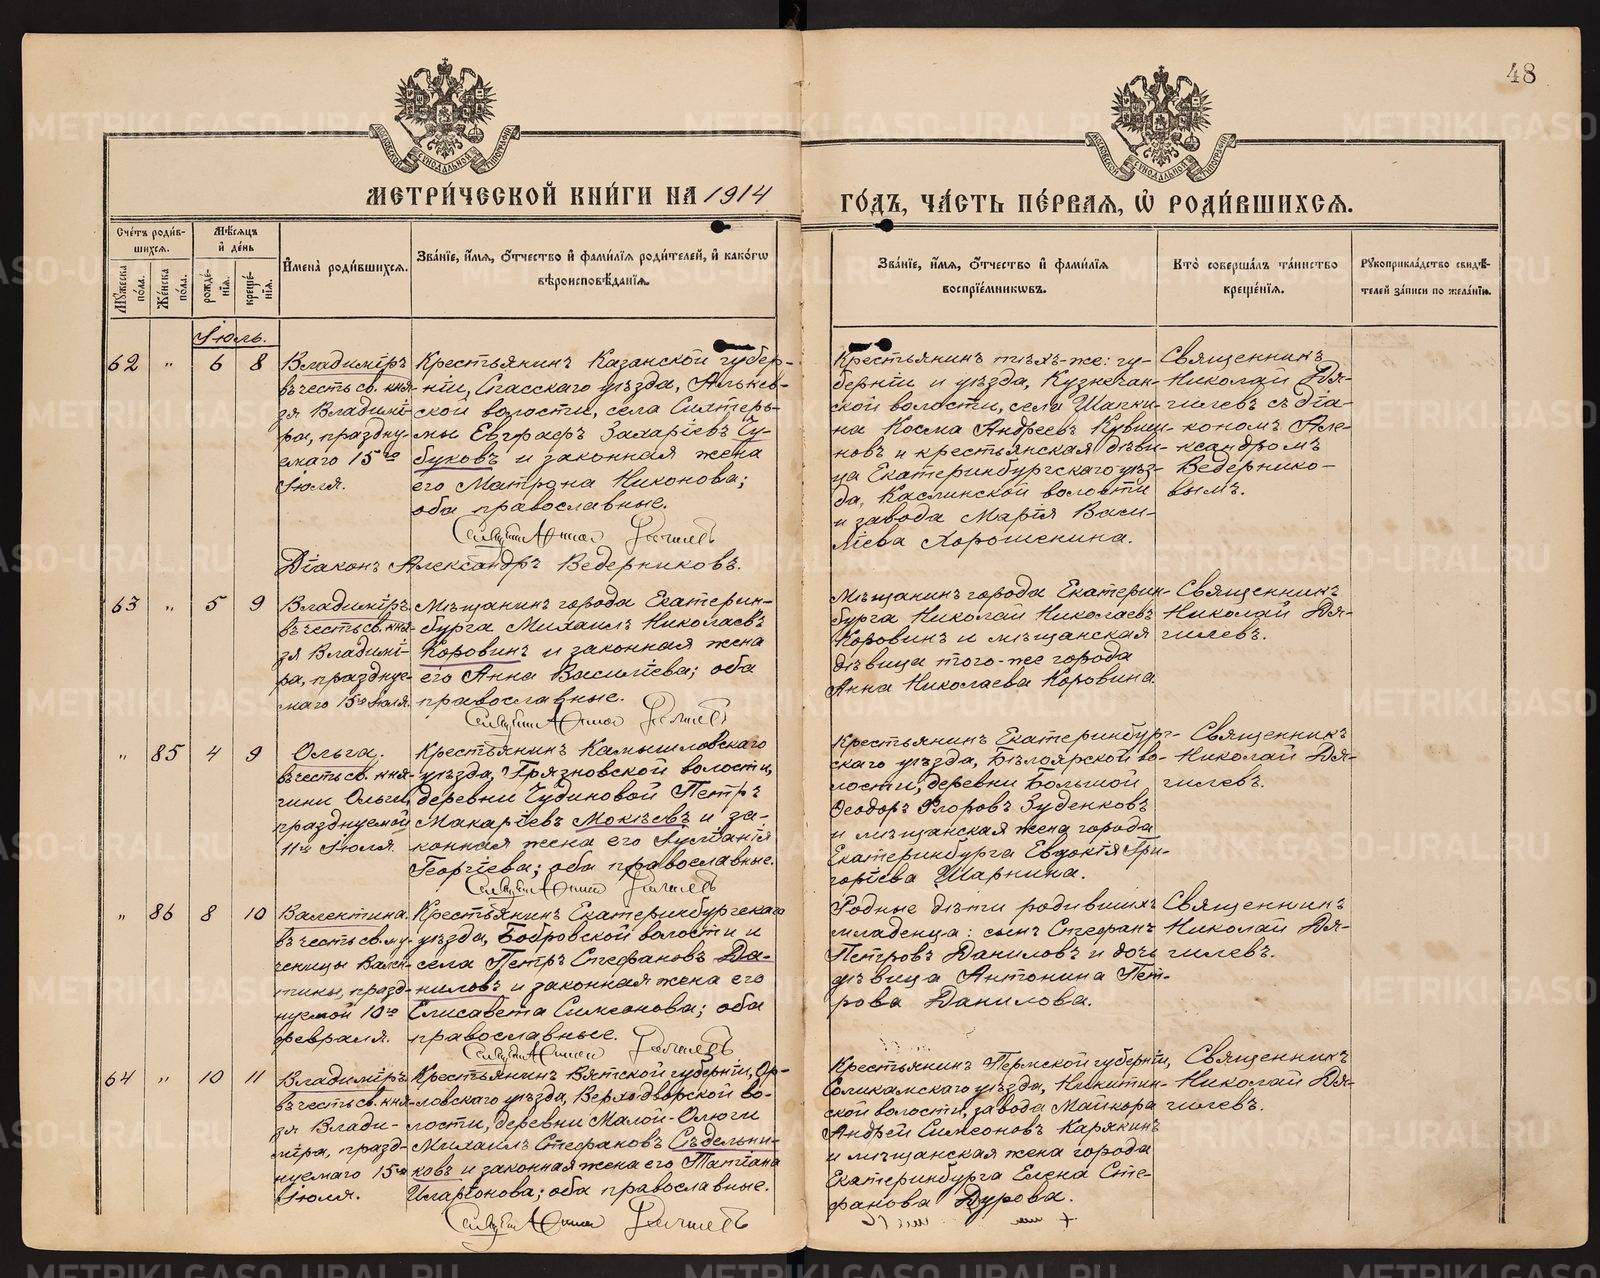 48
МЕТРИЧЕСКОЙ КНИГИ НА 1914
ГОДЪ, ЧАСТЬ ПЕРВАЯ, Ѡ РОДИВШИХСЯ.
Счетъ родив-
шихся.
Мужеска
пола.
Женска
пола.
Мѣсяцъ
и день
рожде-
нія.
креще-
нія.
Имена родившихся.
Званіе, имя, отчество и фамилія родителей, и какогѡ
вѣроисповѣданія.
Званіе, имя, отчество и фамилія
воспріемникѡвъ.
Кто совершалъ таинство
крещенія.
Рукоприкладство свидѣ-
телей записи по желанію.
Іюль.
62 " 6 8
Владиміръ
въ честь св. кня-
зя Владимі-
ра, праздну-
емаго 15го
Іюля.
Крестьянинъ Казанской губер-
ніи, Спасскаго уѣзда, Алькеев-
ской волости, села Сихтерь-
мы Евграфъ Захаріевъ Чу-
буковъ и законная жена
его Матрона Никонова;
оба православные.
Діаконъ Александръ Ведерниковъ.
Крестьянинъ тѣхъ-же: гу-
берніи и уѣзда, Кузнечин-
ской волости, села Шапки-
на Косма Андреевъ Кувши-
новъ и крестьянская дѣви-
ца Екатеринбургскаго уѣз-
да, Каслинской волости
и завода Марія Васи-
ліева Хорошенина.
Священникъ
Николай Дя-
гилевъ съ діа-
кономъ Але-
ксандромъ
Ведернико-
вымъ.
63 " 5 9
Владиміръ
въ честь св. кня-
зя Владимі-
ра, празднуе-
маго 15го Іюля.
Мѣщанинъ города Екатерин-
бурга Михаилъ Николаевъ
Коровинъ и законная жена
его Анна Василіева; оба
православные.
Мѣщанинъ города Екатерин-
бурга Николай Николаевъ
Коровинъ и мѣщанская
дѣвица того-же города
Анна Николаева Коровина.
Священникъ
Николай Дя-
гилевъ.
" 85 4 9
Ольга.
въ честь св. кня-
гини Ольги,
празднуемой
11го Іюля.
Крестьянинъ Камышловскаго
уѣзда, Грязновской волости,
деревни Чудиновой Петръ
Макаріевъ Мокѣевъ и за-
конная жена его Іуліанія
Георгіева; оба православные.
Крестьянинъ Екатеринбург-
скаго уѣзда, Бѣлоярской во-
лости, деревни Большой
Ѳеодоръ Егоровъ Зуденковъ
и мѣщанская жена города
Екатеринбурга Евдокія Гри-
горіева Шарнина.
Священникъ
Николай Дя-
гилевъ.
" 86 8 10
Валентина
въ честь св. му-
ченицы Вален-
тины, празд-
нуемой 10го
февраля.
Крестьянинъ Екатеринбургскаго
уѣзда, Бобровской волости и
села Петръ Стефановъ Да-
ниловъ и законная жена его
Елисавета Симеонова; оба
православные.
Родные дѣти родившихъ
младенца: сынъ Стефанъ
Петровъ Даниловъ и дочь
дѣвица Антонина Пет-
рова Данилова.
Священникъ
Николай Дя-
гилевъ.
64 " 10 11
Владиміръ
въ честь св. кня-
зя Влади-
міра, празд-
нуемаго 15го
Іюля.
Крестьянинъ Вятской губерніи, Ор-
ловскаго уѣзда, Верходворской во-
лости, деревни Малой-Олюги
Михаилъ Стефановъ Сѣдельни-
ковъ и законная жена его Татіана
Иларіонова; оба православные.
Крестьянинъ Пермской губерніи,
Соликамскаго уѣзда, Никитин-
ской волости, завода Майкора
Андрей Симеоновъ Карякинъ
и мѣщанская жена города
Екатеринбурга Елена Сте-
фанова Дурова.
Священникъ
Николай Дя-
гилевъ.
METRIKI.GASO-URAL.RU